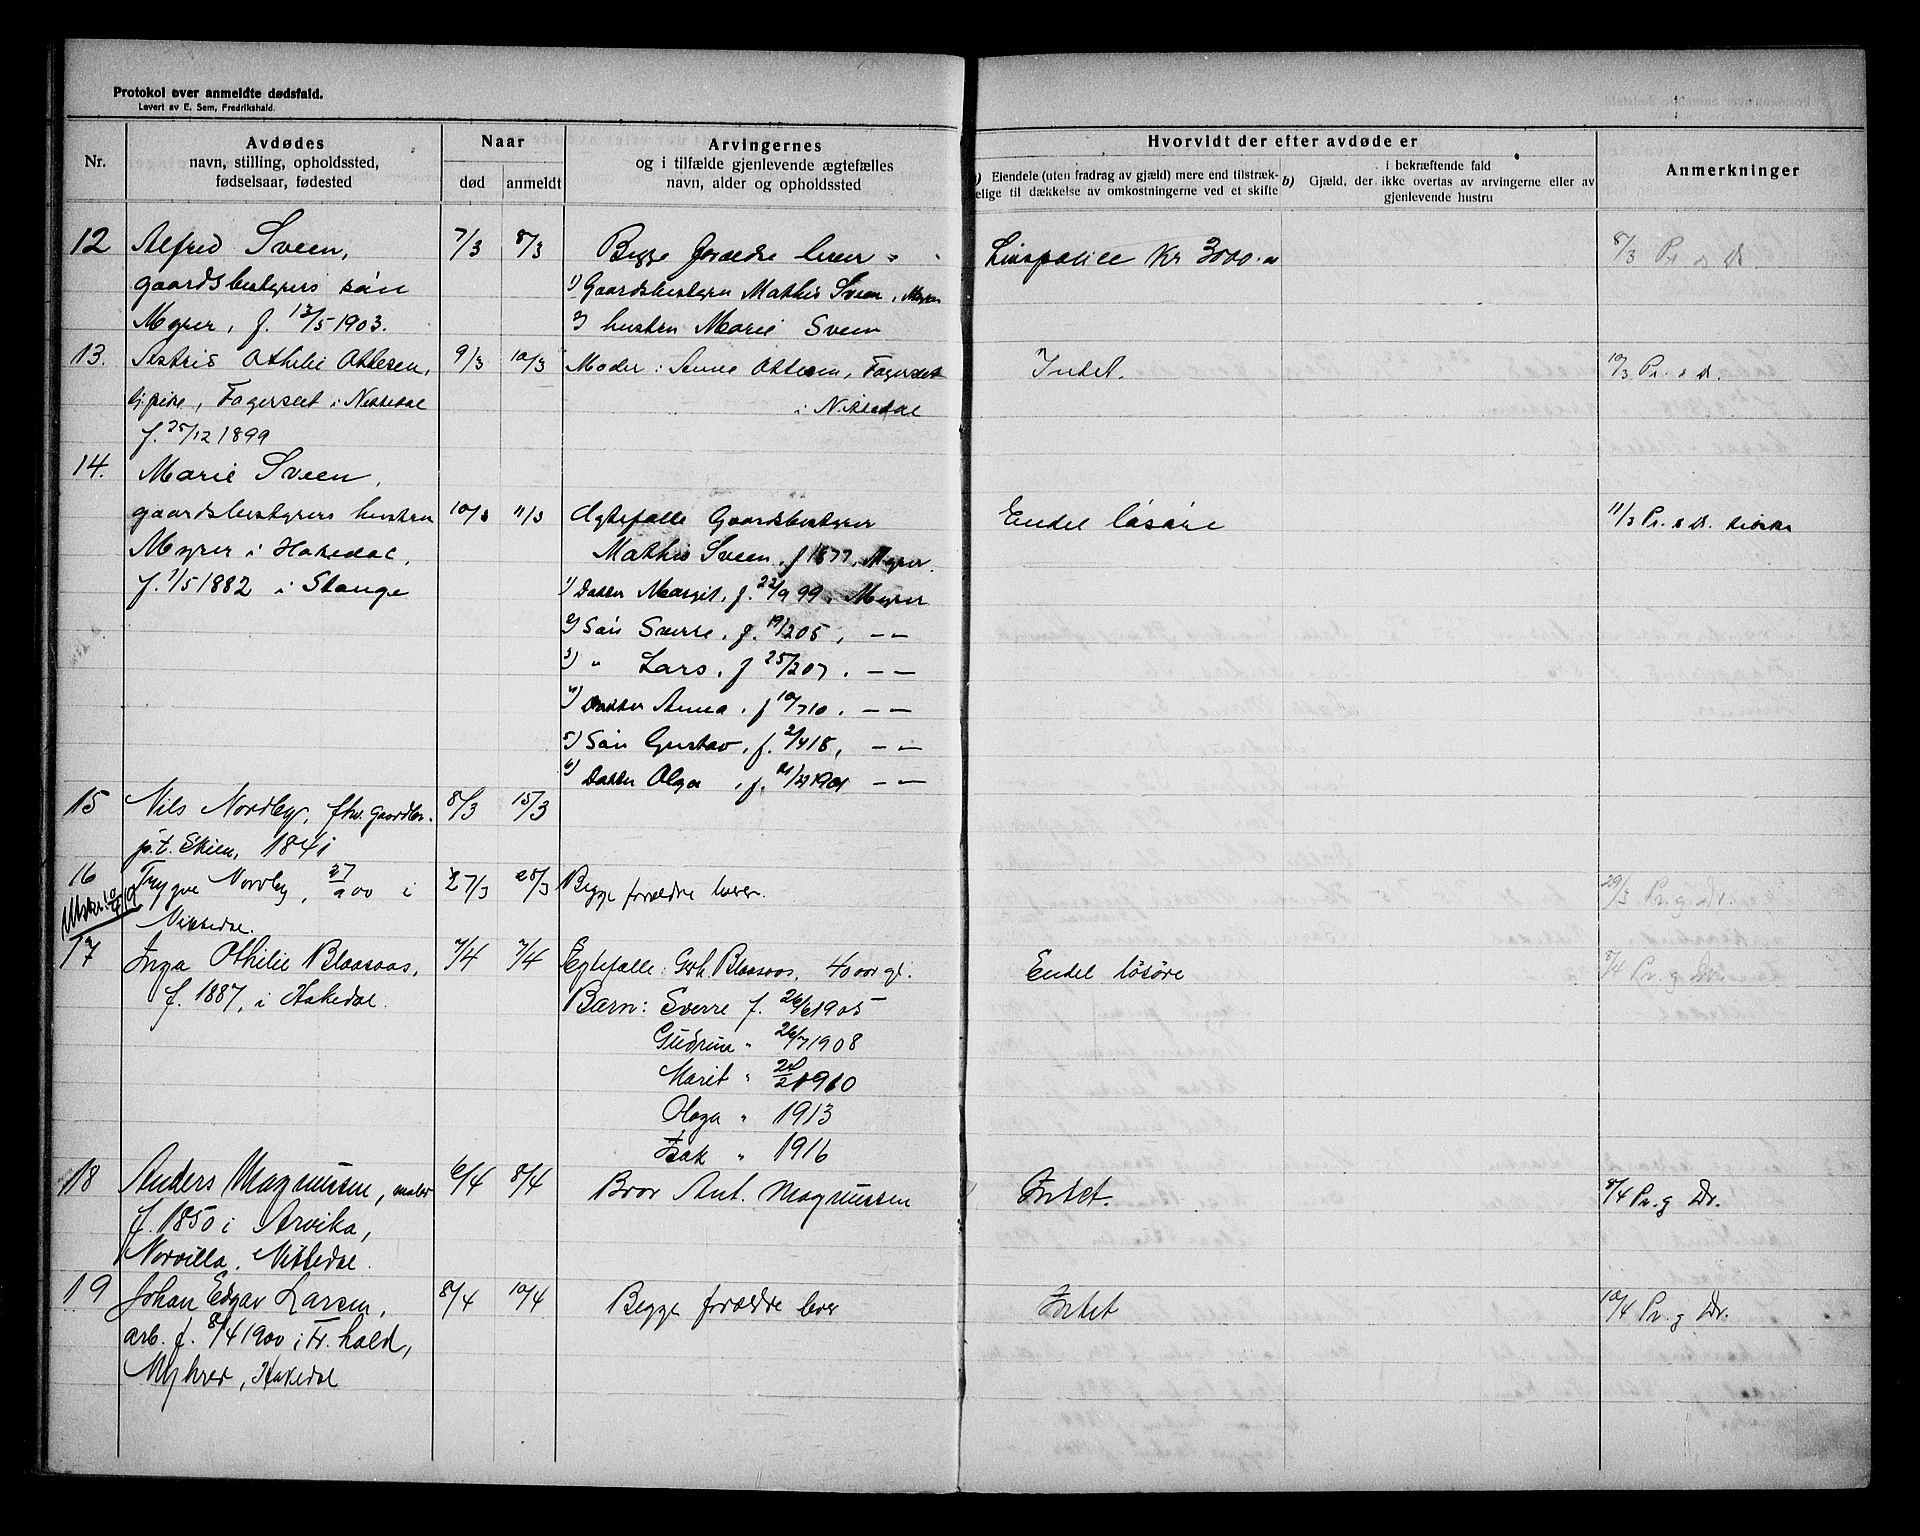 Protokol over anmeldte dødsfald.
Levert av E. Sem, Fredrikshald.
Nr.
Avdødes
navn, stilling, opholdssted,
fødselsaar, fødested
Naar
død
anmeldt
Arvingernes
og i tilfælde gjenlevende ægtefælles
navn, alder og opholdssted
Hvorvidt der efter avdøde er
a) Eiendele (uten fradrag av gjæld) mere end tilstræk-
kelige til dækkelse av omkostningerne ved et skifte
i bekræftende fald
b) Gjæld, der ikke overtas av arvingerne eller av
gjenlevende hustru
Anmerkninger
12 Alfred Sveen, 7/3 8/3 Begge forældre lever Livspolice Kr 3000 8/3 Pr. g Dr
gaardsbestyrers søn 1) Gaardsbestyrer Mathis Sveen, Myrer
Myrer, f. 13/5 1903. 2) hustru Marie Sveen
13. Astrid Othilie Ottesen, 9/3 10/3 Moder: Anna Ottesen, Fagerset Intet. 10/3 Pr. g Dr.
pike, Fagerset i Nittedal i Nittedal
f. 25/12 1899
14. Marie Sveen,
gaardsbestyrers hustru 10/3 11/3 Egtefælle Gaardsbestyrer Endel løsøre 11/3 Pr. g Dr.
Myrer i Hakedal, Mathis Sveen, f 1877, Myrer.
f. 1/5 1882 i Stange 1) Datter Margit, f. 22/9 99, Myrer
2) Søn Sverre, f. 19/2 05, — —
3) " Lars, f 25/2 07. — —
4) Datter Anna, f 10/7 10. — —
5) Søn Gustav, f. 2/4 18, — —
6) Datter Olga, f. 1901 — —
15 Nils Nordby, fhv. gaardbr. 8/3 15/3
p.t. Skien, 1841
16 Trygve Nordby, 27/9 00 i 27/3 28/3 Begge forældre lever. 29/3 Pr. g Dr.
Utskr. 10/4 19 Nittedal.
17 Inga Othilie Blaasaas, 7/4 7/4 Egtefælle: Gerh Blaasaas, 40 aar gl. Endel løsøre 8/4 Pr. g Dr.
f. 1887, i Hakedal. Barn: Sverre f. 26/6 1905
Gudrun " 26/7 1908
Marit " 1910
Olga " 1913
Isak " 1916
18 Anders Magnussen, maler 6/4 8/4 Bror Ant. Magnussen Intet. 8/4 Pr. g Dr.
f. 1850 i Arvika,
Norvilla, Nittedal.
19 Johan Edgar Larsen, 8/4 10/4 Begge forældre lever Intet 10/4 Pr. g Dr.
arb. f. 8/4 1900 i Fr.hald,
Myhrer, Hakedal